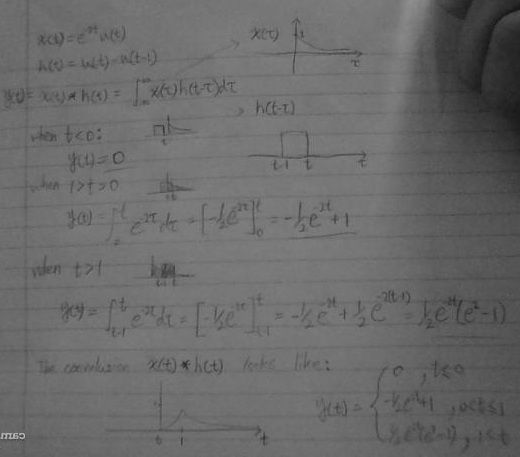 x(t) = e^-2t u(t)
h(t) = u(t) - u(t-1)
x(τ)
1
τ
y(t) = x(t) * h(t) = ∫ x(τ) h(t-τ) dτ
h(t-τ)
when t<0:
t
y(t) = 0
t-1 t τ
when 1>t>0
y(t) = ∫ e^-2τ dτ = [-1/2 e^-2τ]_0^t = -1/2 e^-2t + 1
when t>1
y(t) = ∫_t-1^t e^-2τ dτ = [-1/2 e^-2τ]_t-1^t = -1/2 e^-2t + 1/2 e^-2(t-1) = 1/2 e^-2t (e^2 - 1)
The convolution x(t) * h(t) looks like:
0 1 t
y(t) = { 0 , t<0
-1/2 e^-2t + 1 , 0<t≤1
1/2 e^-2t (e^2 - 1) , 1<t